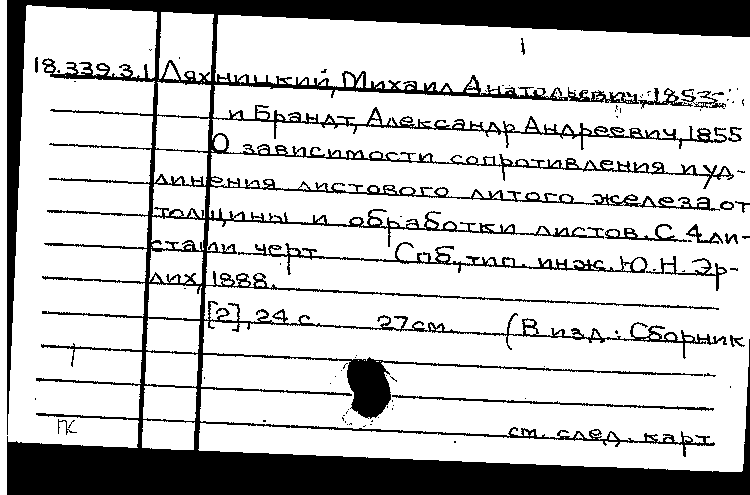 1
18.339.3.1 Ляхницкий, Михаил Анатольевич, 1853-
и Брандт, Александр Андреевич, 1855
О зависимости сопротивления и уд-
линения листового литого железа от
толщины и обработки листов. С 4 ли-
стами черт Спб., тип. инж. Ю.Н. Эр-
лих, 1888.
[2], 24 с. 27см. (В изд: Сборник
ПК
см. след. карт